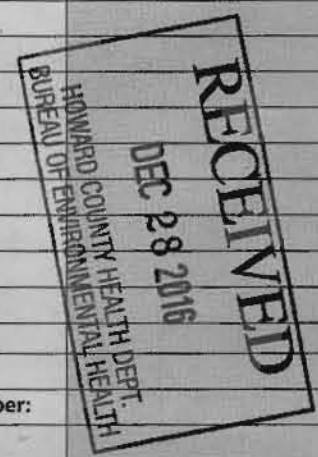 RECEIVED
DEC 28 2016
HOWARD COUNTY HEALTH DEPT.
BUREAU OF ENVIRONMENTAL HEALTH
ber: